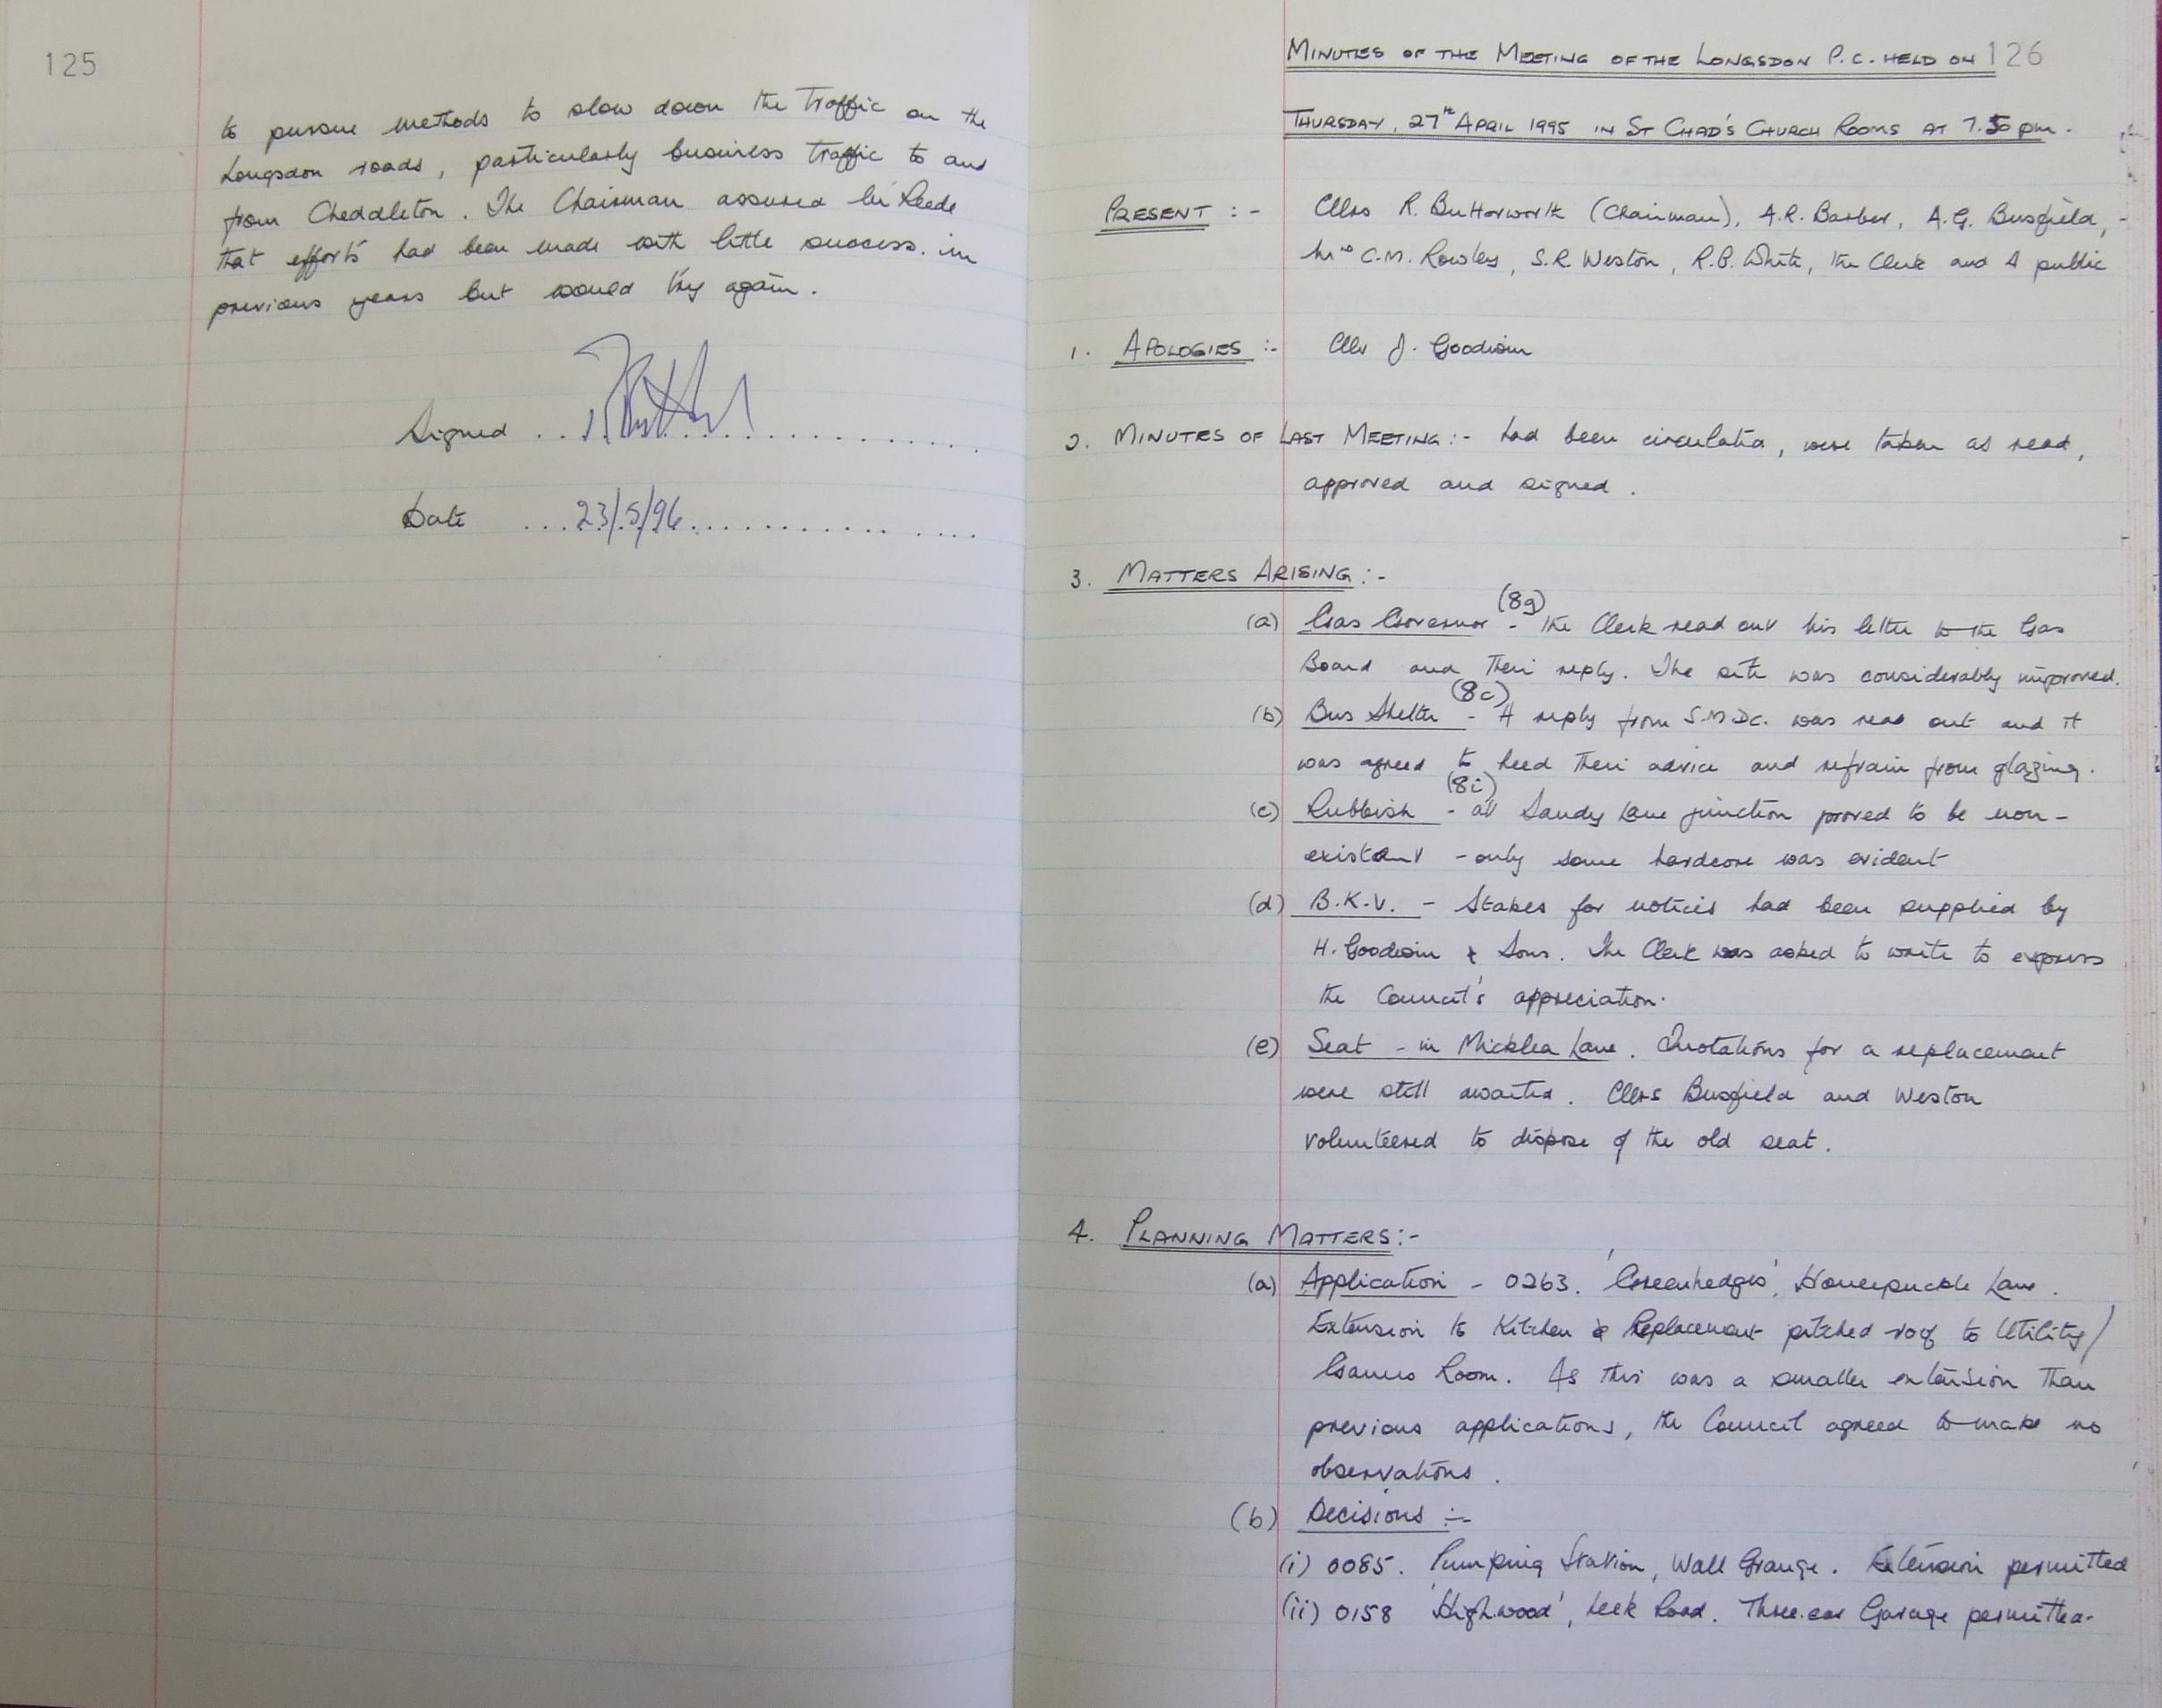 125
to pursue methods to slow down the traffic on the
Longsdon roads, particularly business traffic to and
from Cheddleton. The Chairman assured Mr Reede
that efforts had been made with little success in
previous years but would try again.
Signed ..............................
Date ...23/5/96....................
126
MINUTES OF THE MEETING OF THE LONGSDON P.C. HELD ON
THURSDAY, 27th APRIL 1995 IN ST CHAD'S CHURCH ROOMS AT 7.30 pm.
PRESENT :- Cllrs R. Butterworth (Chairman), A.R. Barber, A.G. Busfield,
Mrs C.M. Rowley, S.R. Weston, R.B. White, the Clerk and 4 public
1. APOLOGIES :- Cllr J. Goodwin
2. MINUTES OF LAST MEETING :- had been circulated, were taken as read,
approved and signed.
3. MATTERS ARISING :-
(a) Gas Governor (8g) - the Clerk read out his letter to the Gas
Board and their reply. The site was considerably improved.
(b) Bus Shelter (8c) - A reply from S.M.D.C. was read out and it
was agreed to heed their advice and refrain from glazing.
(c) Rubbish (8i) - at Sandy Lane junction proved to be non-
existent - only some hardcore was evident
(d) B.K.V. - Stakes for notices had been supplied by
H. Goodwin & Sons. The Clerk was asked to write to express
the Council's appreciation.
(e) Seat - in Micklea Lane. Quotations for a replacement
were still awaited. Cllrs Busfield and Weston
volunteered to dispose of the old seat.
4. PLANNING MATTERS :-
(a) Application - 0263. 'Greenhedges', Honeysuckle Lane.
Extension to Kitchen & Replacement pitched roof to Utility/
Games Room. As this was a smaller extension than
previous applications, the Council agreed to make no
observations.
(b) Decisions :-
(i) 0085. Pumping Station, Wall Grange. Extension permitted
(ii) 0158 'Highwood', Leek Road. Three-car Garage permitted.